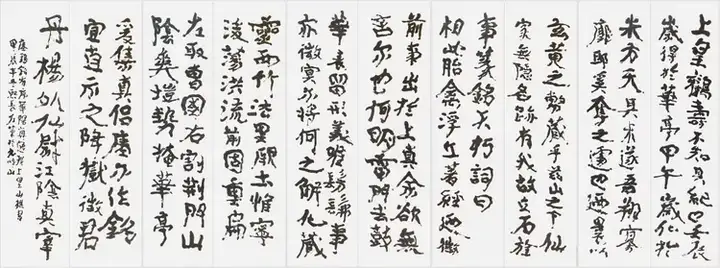 上皇鶴壽不知其紀也壬辰
歲得於華亭甲午歲化於
朱方天其未遂吾翔寥
廓耶奚奪之遽也廼裹以
玄黃之幣藏乎茲山之下仙
家無隱名跡有我故立石旌
事篆銘不朽詞曰
相此胎禽浮丘著經廼徵
前事出於上真余欲無
言尔也何明雷門去鼓
華表留形義唯髣髴事
亦微冥尔將何之解化藏
靈西竹法里厥土惟寧
後蕩洪流前固重扃
左取曹國右割荆門山
陰爽塏勢掩華亭
爰集真侶瘞尔作銘
宜直示之降嶽徵君
丹楊外仙尉江陰真宰